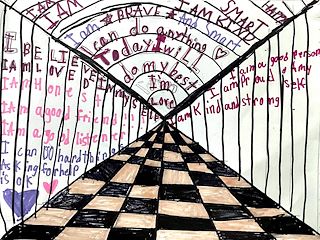 I AM
I AM
SMART
I AM KIND
HAPPY
I am BRAVE And smart
I can do anything
Today I will
do my best
I'm
Loved
I BELIEVE IN MYSELF
I AM LOVED
I am Honest
I Am a good friend
I Am a good listener
I can DO hard things
Asking for help
is ok
I am a good person
I am proud of my
self
I am Kind and strong